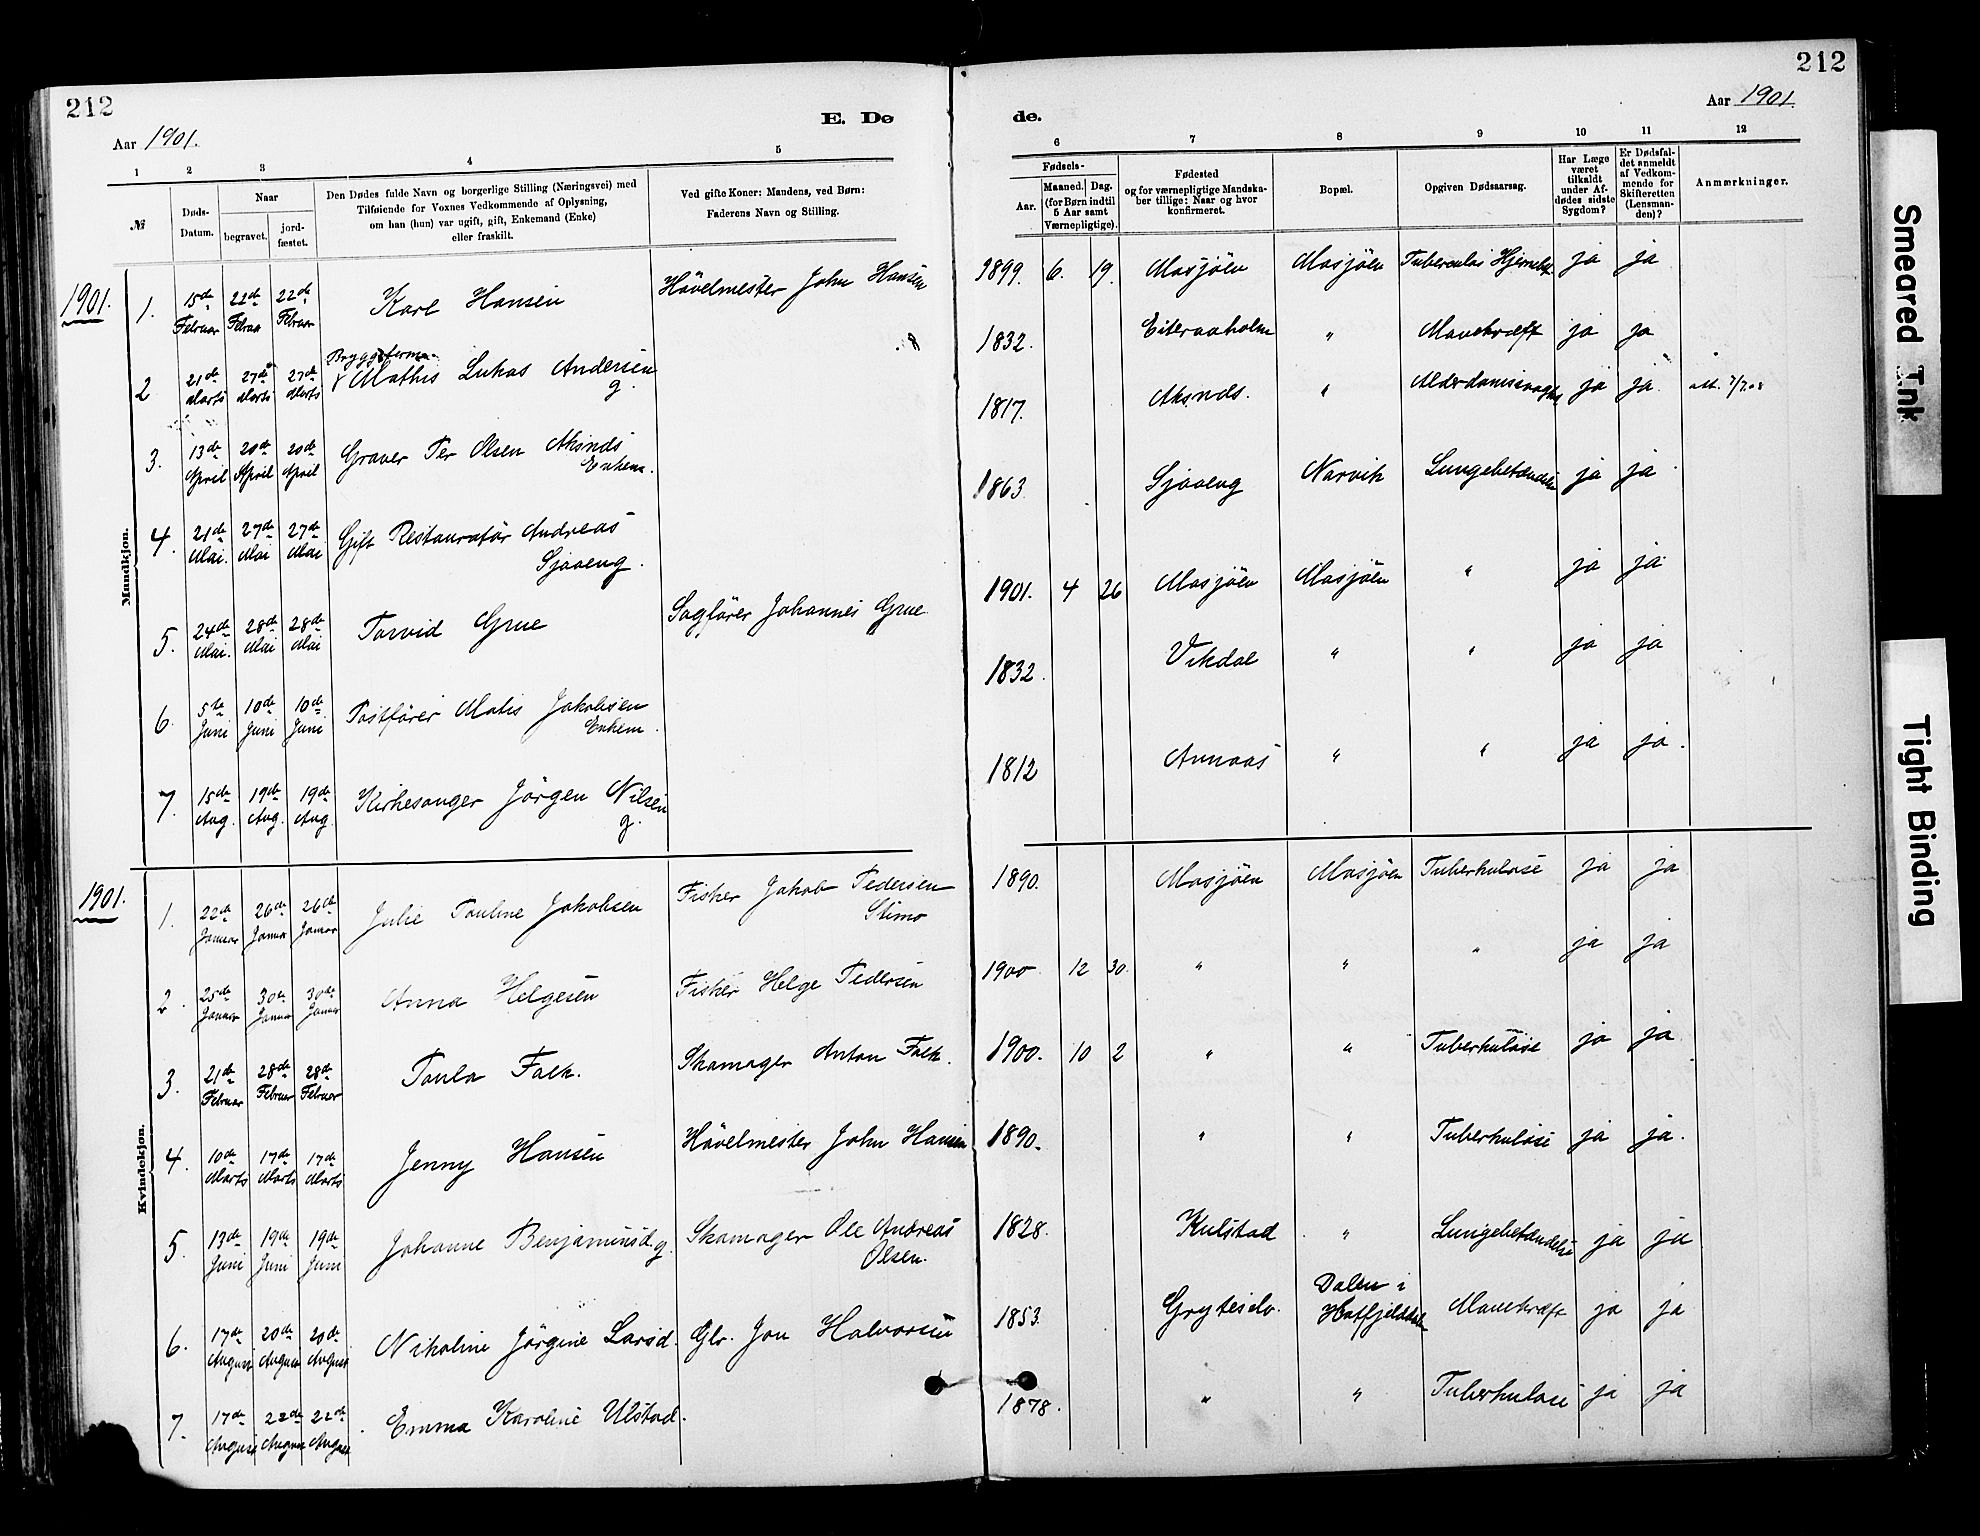 212
Aar 1901.
E. Dø
1 2 3 4 5
№
Døds-Datum.
Naar
begravet.
jord-fæstet.
Den Dødes fulde Navn og borgerlige Stilling (Næringsvei) med
Tilføiende for Voxnes Vedkommende af Oplysning,
om han (hun) var ugift, gift, Enkemand (Enke)
eller fraskilt.
Ved gifte Koner: Mandens, ved Børn:
Faderens Navn og Stilling.
Mandkjøn.
1901. 1. 15de Februar 22de Februar 22de Februar Karl Hansen Hövelmester John Hansen
2 21de Marts 27de Marts 27de Marts Mathis Lukas Andersen g.
3. 13de April 20de April 20de April Graver Per Olsen Aksnds Enkem.
4. 21de Mai. 27de Mai 27de Mai Gift Restauratör Andreas
Sjaaeng.
5. 24de Mai. 28de Mai 28de Mai Torvid Grue Sagförer Johannes Grue
6. 5te Juni 10de Juni 10de Juni Postförer Matis Jakobsen
Enkem.
7. 15de Aug. 19de Aug. 19de Aug. Kirkesanger Jörgen Nilsen
g.
Kvindekjøn.
1901. 1. 22de Januar 26de Januar 26de Januar Julie Pauline Jakobsen Fisker Jakob Pedersen
Stimo
2. 25de Januar 30de Januar 30de Januar Anna Helgesen Fisker Helge Pedersen
3. 21de Februar 28de Februar 28de Februar Paula Falk. Skomager Anton Falk.
4. 10de Marts 17de Marts 17de Marts Jenny Hansen Hövelmester John Hansen
5. 13de Juni 19de Juni 19de Juni Johanne Benjaminsd. g. Skomager Ole Andreas
Olsen.
6. 17de August 20de August 20de August Nikoline Jörgine Larsd. Glr. Jon Halvorsen
7. 17de August 22de August 22de August Emma Karoline Ulstad.
212
Aar 1901.
de.
6 7 8 9 10 11 12
Fødsels-
Aar.
Maaned. Dag.
(for Børn indtil
5 Aar samt
Værnepligtige).
Fødested
og for værnepligtige Mandska-
ber tillige: Naar og hvor
konfirmeret.
Bopæl.
Opgiven Dødsaarsag.
Har Læge
været
tilkaldt
under Af-
dødes sidste
Sygdom?
Er Dødsfal-
det anmeldt
af Vedkom-
mende for
Skifteretten
(Lensman-
den)?
Anmærkninger.
1899. 6. 19. Mosjöen Mosjöen ja ja
1832. Eiteraaholm " Mavekræft ja ja
1817. Aksnds. " ja ja.
1863. Sjaaeng Narvik Lungebetændelse ja ja
1901. 4 26 Mosjöen Mosjöen " ja ja.
1832. Vikdal " " ja ja
1812 " " ja ja.
1890. Mosjöen Mosjöen Tuberkulose ja ja
1900. 12 30. " " " ja ja
1900. 10 2 " " Tuberkulose ja ja.
1890. " " Tuberkulose ja ja.
1828. Kulstad " Lungebetændelse ja ja
1853. Gryteselv. Dalen i
Hatfjelddalen Mavekræft ja ja
1878. " " Tuberkulose ja ja
Smeared Ink
Tight Binding